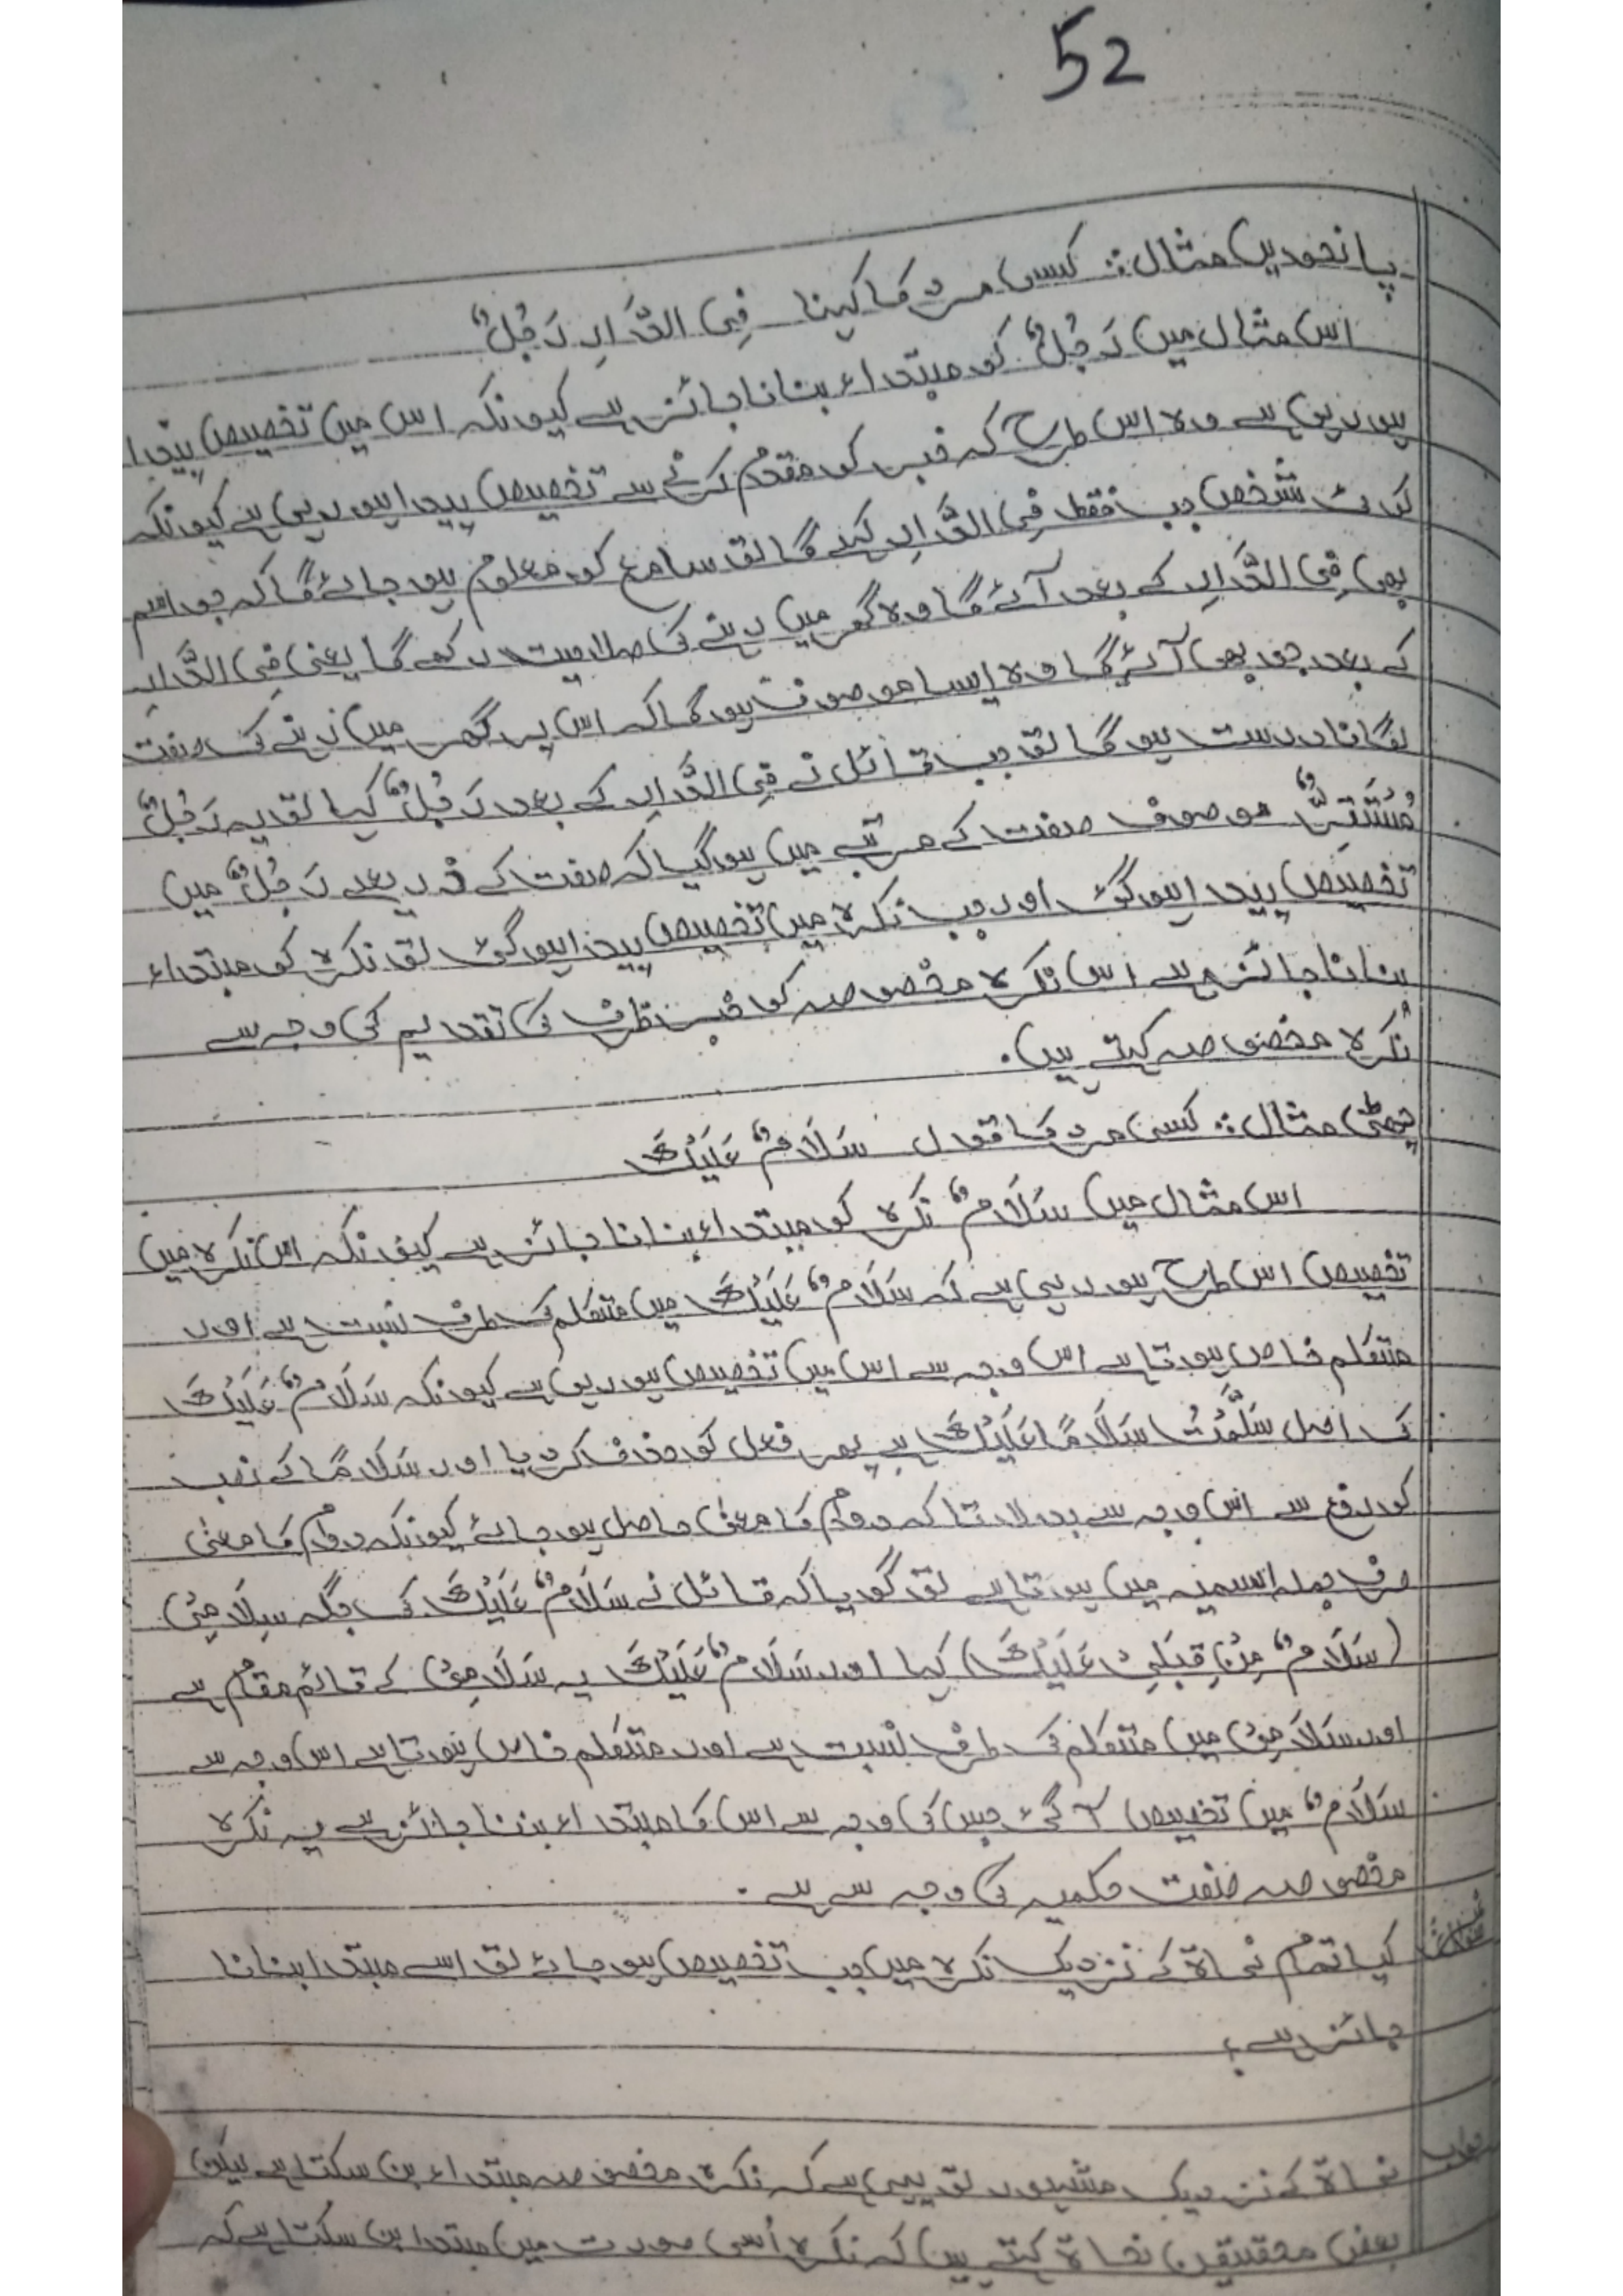 52
پانچویں مثال: کسی مرد کا کہنا فِی الدَّارِ رَجُلٌ
اس مثال میں رَجُلٌ کو مبتداء بنانا جائز ہے کیونکہ اس میں تخصیص پیدا
ہو رہی ہے وہ اس طرح کہ خبر کو مقدم کرنے سے تخصیص پیدا ہو رہی ہے کیونکہ
کوئی شخص جب فقط فِی الدَّارِ کہے گا تو سامع کو معلوم ہو جائے گا کہ جو اسم
بھی فِی الدَّارِ کے بعد آئے گا وہ گھر میں رہنے کی صلاحیت رکھے گا یعنی فِی الدَّارِ
کے بعد جو بھی آئے گا وہ ایسا موصوف ہو گا کہ اس پر گھر میں رہنے کی صفت
لگانا درست ہو گا تو جب قائل نے فِی الدَّارِ کے بعد رَجُلٌ کہا تو یہ رَجُلٌ
مُسْتَقِرٌّ موصوف صفت کے مرتبے میں ہو گیا کہ صفت کے ذریعے رَجُلٌ میں
تخصیص پیدا ہو گئی اور جب نکرہ میں تخصیص پیدا ہو گئی تو نکرہ کو مبتداء
بنانا جائز ہے اس نکرہ مخصوصہ کو خبر ظرف کی تقدیم کی وجہ سے
نکرہ مخصوصہ کہتے ہیں.
چھٹی مثال: کسی مرد کا قول سَلَامٌ عَلَیْکَ
اس مثال میں سَلَامٌ نکرہ کو مبتداء بنانا جائز ہے کیونکہ اس نکرہ میں
تخصیص اس طرح ہو رہی ہے کہ سَلَامٌ عَلَیْکَ میں متکلم کی طرف نسبت ہے اور
متکلم خاص ہوتا ہے اس وجہ سے اس میں تخصیص ہو رہی ہے کیونکہ سَلَامٌ عَلَیْکَ
کی اصل سَلَّمْتُ سَلَامًا عَلَیْکَ ہے پھر فعل کو حذف کر دیا اور سَلَامًا کے نصب
کو رفع سے اس وجہ سے بدلا تاکہ دوام کا معنٰی حاصل ہو جائے کیونکہ دوام کا معنٰی
صرف جملہ اسمیہ میں ہوتا ہے تو گویا کہ قائل نے سَلَامٌ عَلَیْکَ کی جگہ سَلَامِیْ
(سَلَامٌ مِنْ قِبَلِیْ عَلَیْکَ) کہا اور سَلَامٌ عَلَیْکَ یہ سَلَامِیْ کے قائم مقام ہے
اور سَلَامِیْ میں متکلم کی طرف نسبت ہے اور متکلم خاص ہوتا ہے اس وجہ سے
سَلَامٌ میں تخصیص آ گئی جس کی وجہ سے اس کا مبتداء بننا جائز ہے یہ نکرہ
مخصوصہ صفت حکمیہ کی وجہ سے ہے.
کیا تمام نحاۃ کے نزدیک نکرہ میں جب تخصیص ہو جائے تو اسے مبتدا بنانا
جائز ہے؟
جواب نحاۃ کے نزدیک مشہور تو یہی ہے کہ نکرہ مخصوصہ مبتداء بن سکتا ہے لیکن
بعض محققین نحاۃ کہتے ہیں کہ نکرہ اُسی صورت میں مبتدا بن سکتا ہے کہ